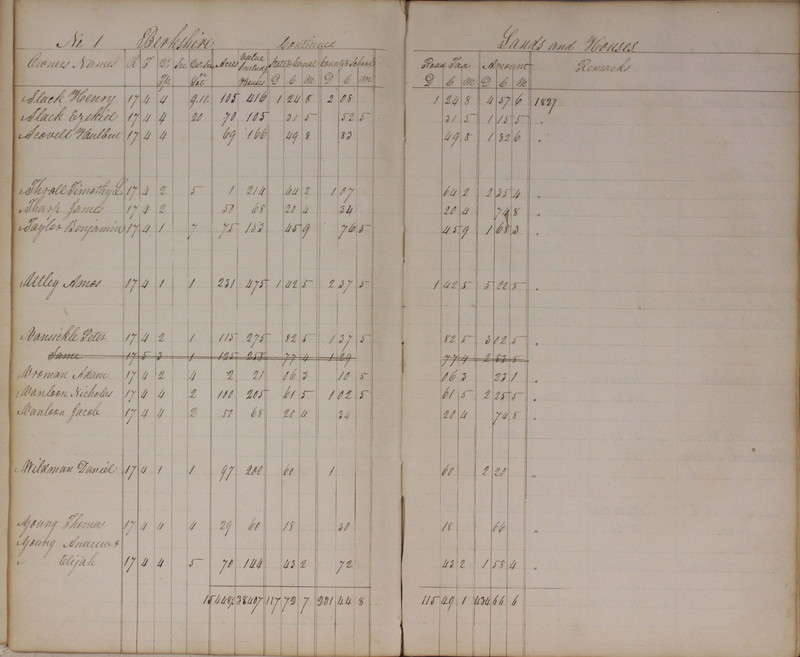 No 1 Berkshire Continued Lands and Houses
Owners Names R T Qr Tp Acres Value Including Houses State & Canal County & School Road Tax Amount Remarks
D C M D C M D C M D C M
Slack Henry 17 4 4 9.12 105 416 1 24 8 2 08 1 24 8 4 57 6 1827
Slack Ezekiel 17 4 4 20 70 105 31 5 52 5 31 5 1 15 5 "
Scovell 17 4 4 69 166 49 8 83 49 8 1 82 6 "
Thrall Timothy L 17 4 2 5 1 214 64 2 1 07 64 2 2 35 4 "
Tharp James 17 4 2 50 68 20 4 34 20 4 74 8 "
Taylor Benjamin 17 4 1 7 75 153 45 9 76 5 45 9 1 68 3 "
Utley Amos 17 4 1 1 231 475 1 42 5 2 37 5 1 42 5 5 22 5 "
Vansickle Peter 17 4 2 1 115 275 82 5 1 37 5 82 5 3 02 5 "
Same 17 5 3 1 125 258 77 4 1 29 77 4 2 83 8
Vrooman Adam 17 4 2 4 2 21 06 3 10 5 06 3 23 1 "
Vanloon Nicholas 17 4 4 2 100 205 61 5 1 02 5 61 5 2 25 5 "
Vanloon Jacob 17 4 4 2 50 68 20 4 34 20 4 74 8 "
Wildman Daniel 17 4 1 1 97 200 60 1 60 2 20 "
Young Thomas 17 4 4 4 29 60 18 30 18 66 "
Young Andrew &
Elijah 17 4 4 5 70 144 43 2 72 43 2 1 58 4 "
38407 117 73 7 201 44 8 115 49 1 434 66 6